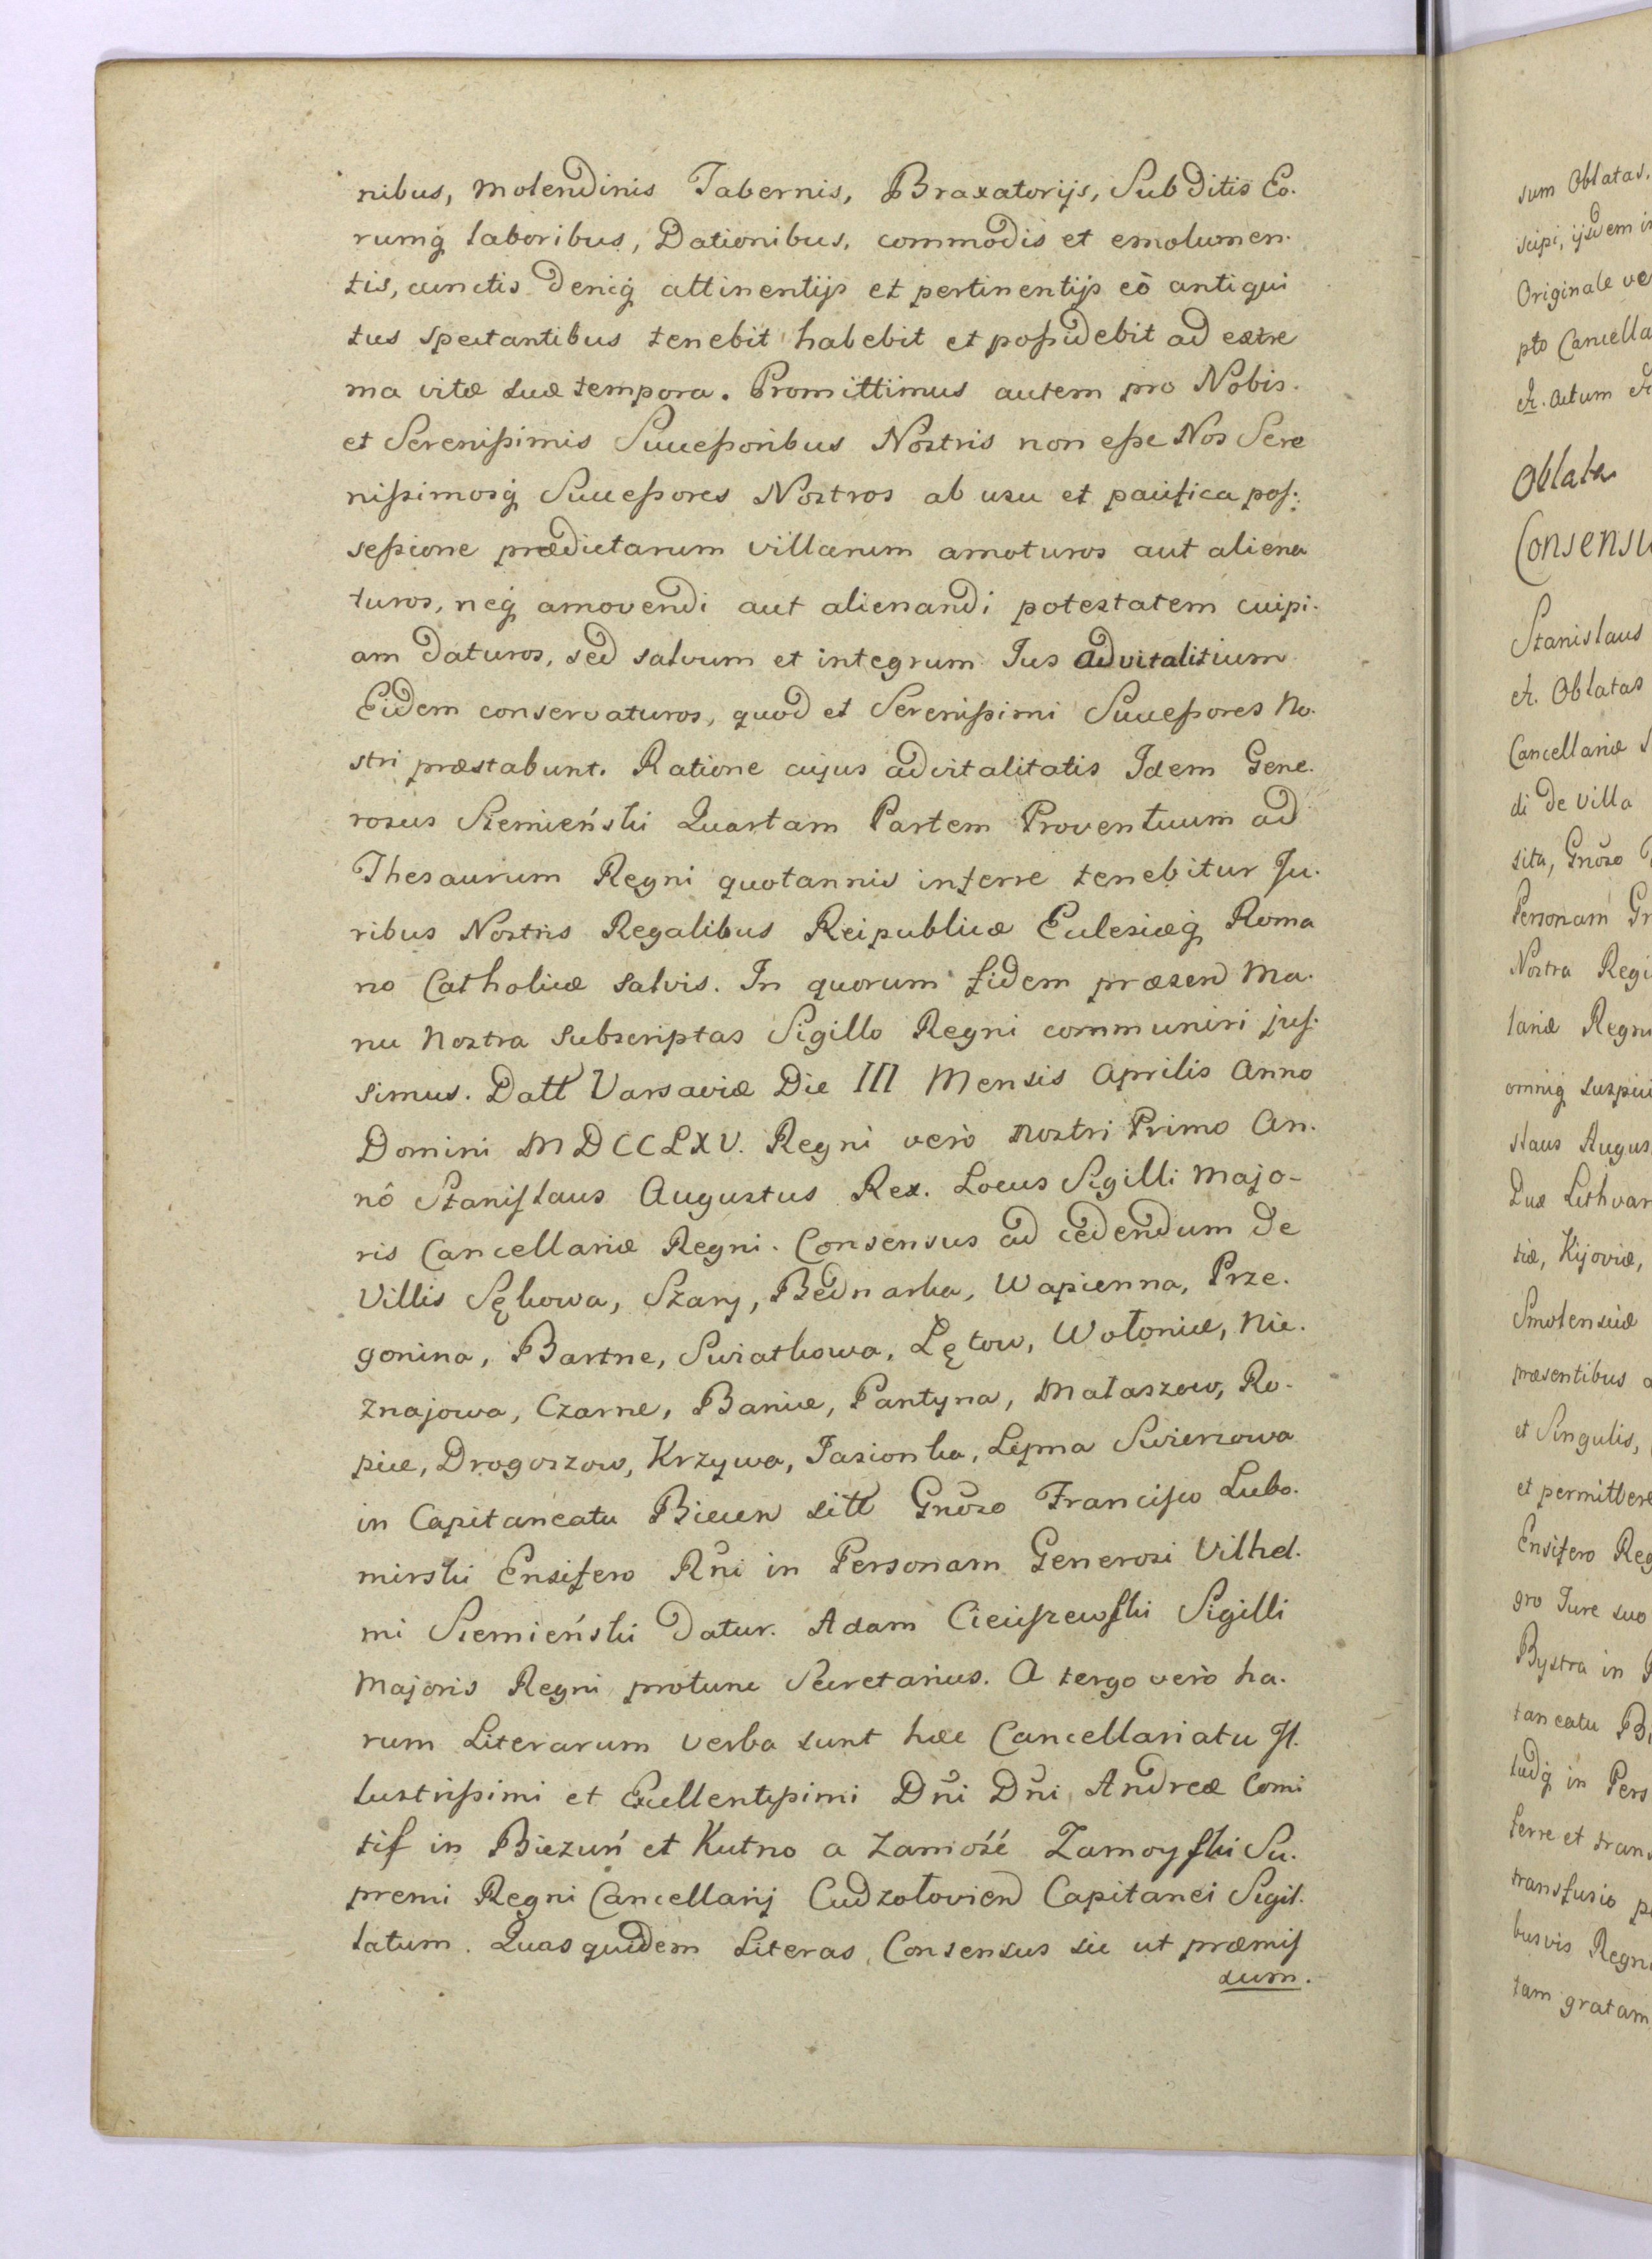 nibus, molendinis Tabernis, Braxatorijs, Subditis Eo.
rumq̃ laboribus, Dationibus, commodis et emolumen.
tis, cunctis deniq̃ attinentijs et pertinentijs eò antiqui
tus spectantibus tenebit habebit et poſsidebit ad extre
ma vitæ suæ tempora. Promittimus autem pro Nobis.
et Sereniſsimis Succeſsoribus Nostris non eſse Nos Sere
niſsimosq̃ Succeſsores Nostros ab usu et pacifica poſ:
seſsione prædictarum villarum amoturos aut aliena
turos, neq̃ amovendi aut alienandi potestatem cuipi.
am daturos, sed salvum et integrum Jus advitalitium
Eidem conservaturos, quod et Sereniſsimi Succeſsores No.
stri præstabunt. Ratione cujus advitalitatis Idem Gene.
rosus Siemieński Quartam Partem Proventuum ad
Thesaurum Regni quotannis inferre tenebitur Ju.
ribus Nostris Regalibus Reipublicæ Eclesiæq̃ Roma
no Catholicæ salvis. In quorum fidem præsen Ma.
nu Nostra subscriptas Sigillo Regni communiri juſ.
simus. Datt Varsaviæ Die III Mensis Aprilis Anno
Domini MDCCLXV. Regni verò nostri Primo An.
nô Staniſlaus Augustus Rex. Locus Sigilli Majo-
ris Cancellariæ Regni. Consensus ad cedendum de
Villis Sękowa, Szary, Bednarka, Wapienna, Prze.
gonina, Bartne, Swiatkowa, Lętow, Wołowice, Nie.
znajowa, Czarne, Banice, Pantyna, Małaszow, Ro-
pice, Drogoszow, Krzywa, Jasionka, Lipna Swierzowa
in Capitaneatu Biecen sitt Gñoso Franciſco Lubo.
mirski Ensifero Rñi in Personam Generosi Vilhel.
mi Siemieński datur. Adam Cieciſzewſki Sigilli
Majoris Regni protunc Secretarius. A tergo verò ha.
rum Literarum verba sunt hæc Cancellariatu Jl.
lustriſsimi et Excellentiſsimi Dñi Dñi Andreæ Comi
tiſ in Biezuń et Kutno a Zamość Zamoyſki Su.
premi Regni Cancellarij Cudzołovien Capitanei Sigil.
latum. Quas quidem Literas Consensus sic ut præmiſ
sum.
sum Oblatas,
scipi, ijsdem in
Originale ve
pto Cancella
etc. Actum
Oblata
Consensu
Stanislaus
etc. Oblatas
Cancellariæ S
di de Villa
sita, Gñoso
Personam
Nostra Regi
lariæ Regni
omniq̃ suspici
slaus Augus
Dux Lithvan
siæ, Kijoviæ,
Smolensciæ
præsentibus
et Singulis,
et permittere
Ensifero Reg
gro Jure suo
Bystra in
taneatu Bi
tudq̃ in Pers
ferre et trans
transfusio
busvis Regni
tam gratam